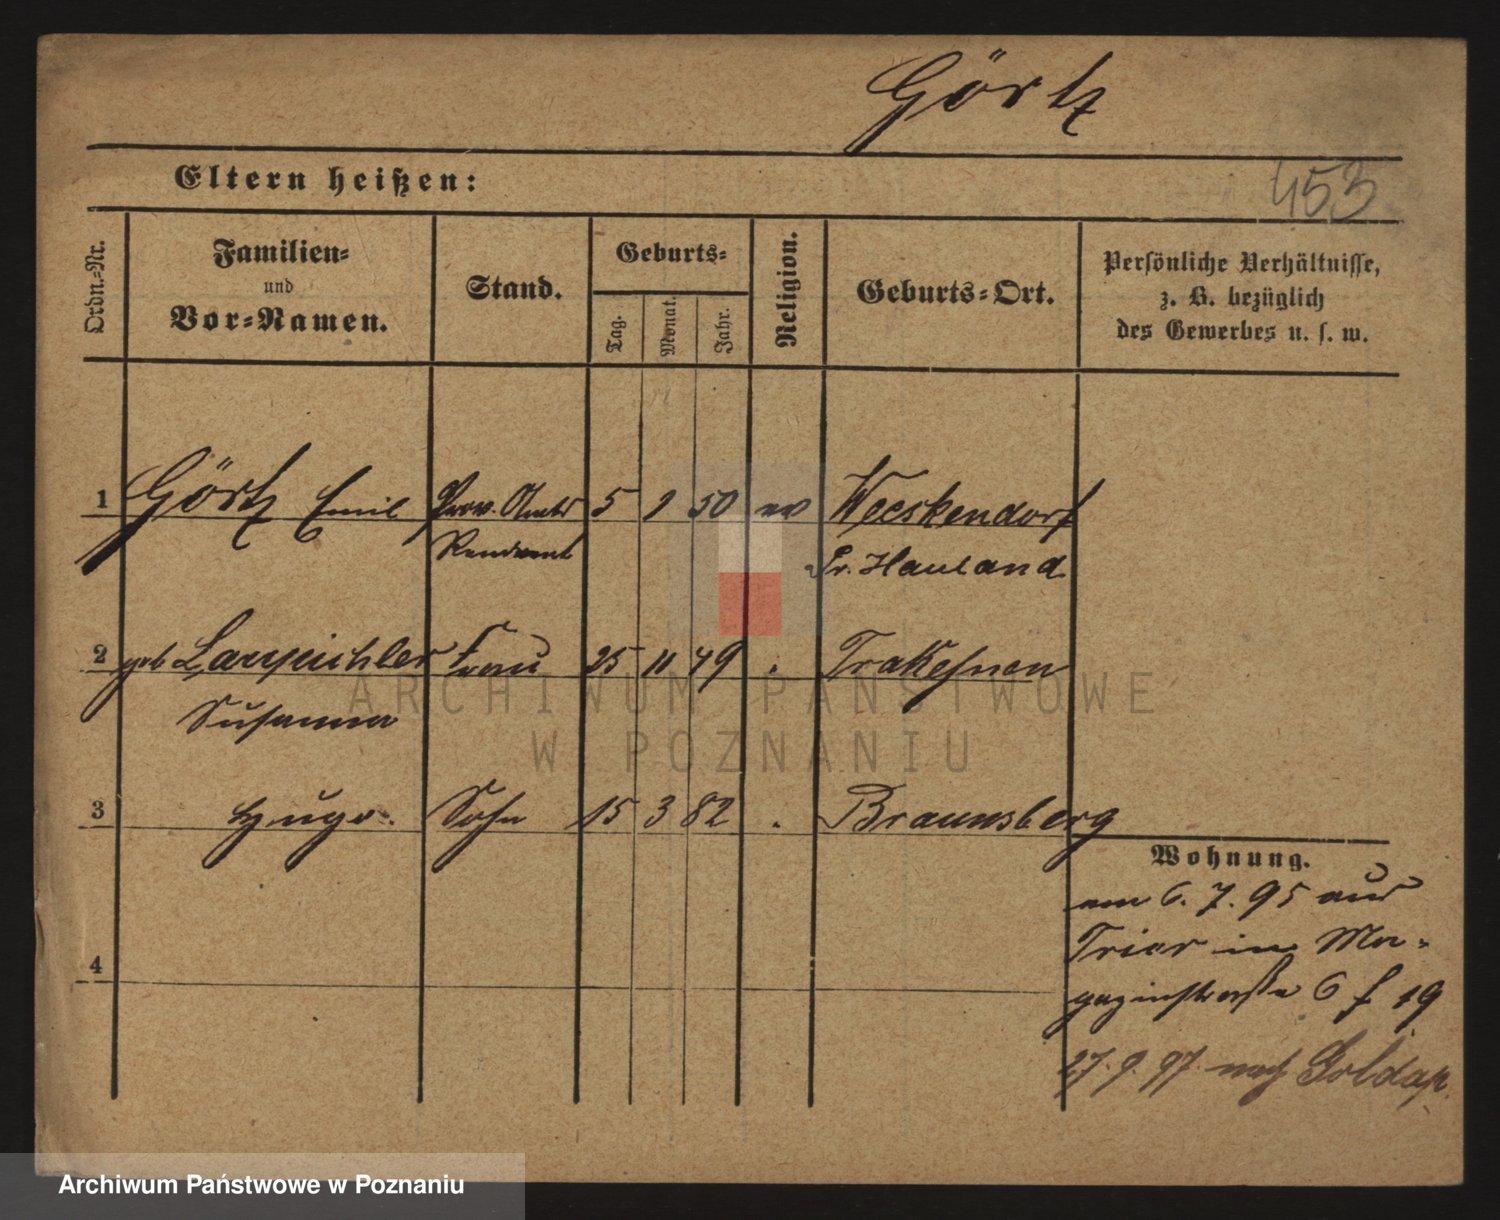 Görtz
Eltern heißen:
453
Ordn.-Nr.
Familien-
und
Vor-Namen.
Stand.
Geburts-
Tag.
Monat.
Jahr.
Religion.
Geburts-Ort.
Persönliche Verhältnisse,
z. B. bezüglich
des Gewerbes u. s. w.
1 Görtz Emil Prov. Amts 5 1 50 ev Weeskendorf
Rendant Pr. Holland
2 geb Laupichler Frau 25 11 49 . Trakehnen
Susanna
3 Hugo. Sohn 15 3 82 . Braunsberg
Wohnung.
am 6. 7. 95 aus
Trier in Ma-
gazinstraße 6 f 19
27. 9. 97 nach Goldap.
4
ARCHIWUM PAŃSTWOWE
W POZNANIU
Archiwum Państwowe w Poznaniu